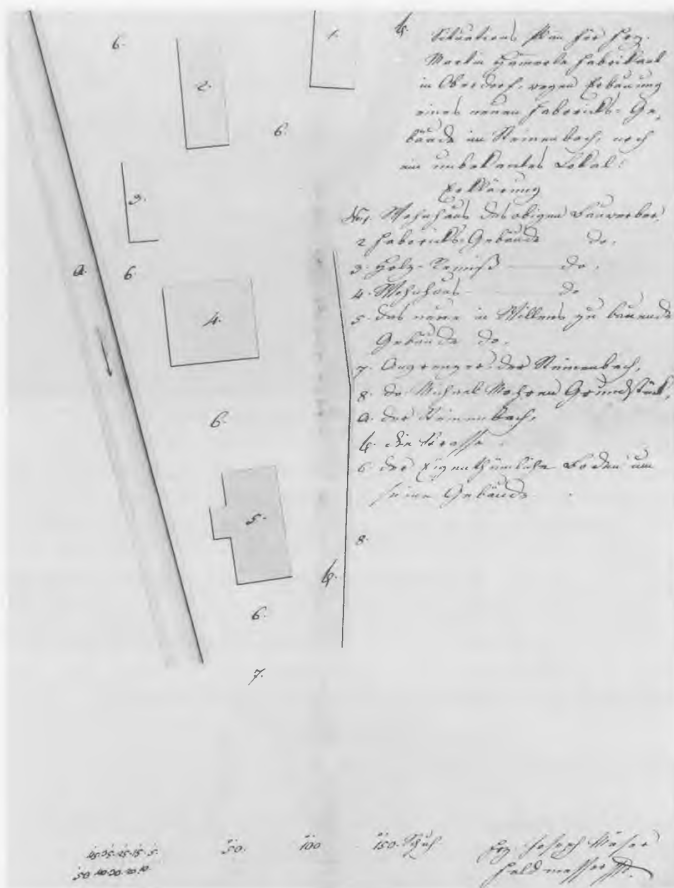 Situations Plan für Hrn.
Martin Hämmerle Fabrikant
in Oberdorf, wegen Erbauung
eines neuen Fabricks-Ge-
bäude im Steinenbach, noch
ein unbekantes Lokal:
Erklärung
No 1. Wohnhaus des obigen Bauwerber.
2 Fabricks-Gebäude do.
3. Holz-Remiß do.
4. Wohnhaus do
5. das neue in Willens zu bauende
Gebäude do.
7. Angrenzer der Steinenbach,
8. do Michael Mohren Grundstück,
a. der Steinenbach,
b. die Strasse.
6 der Eigenthümliche Boden um
seine Gebäude.
6.
1.
b.
2.
6.
3.
a.
6.
4.
6.
5.
8.
b.
6.
7.
50. 100 150. Schuh
Joseph
Feldmesser